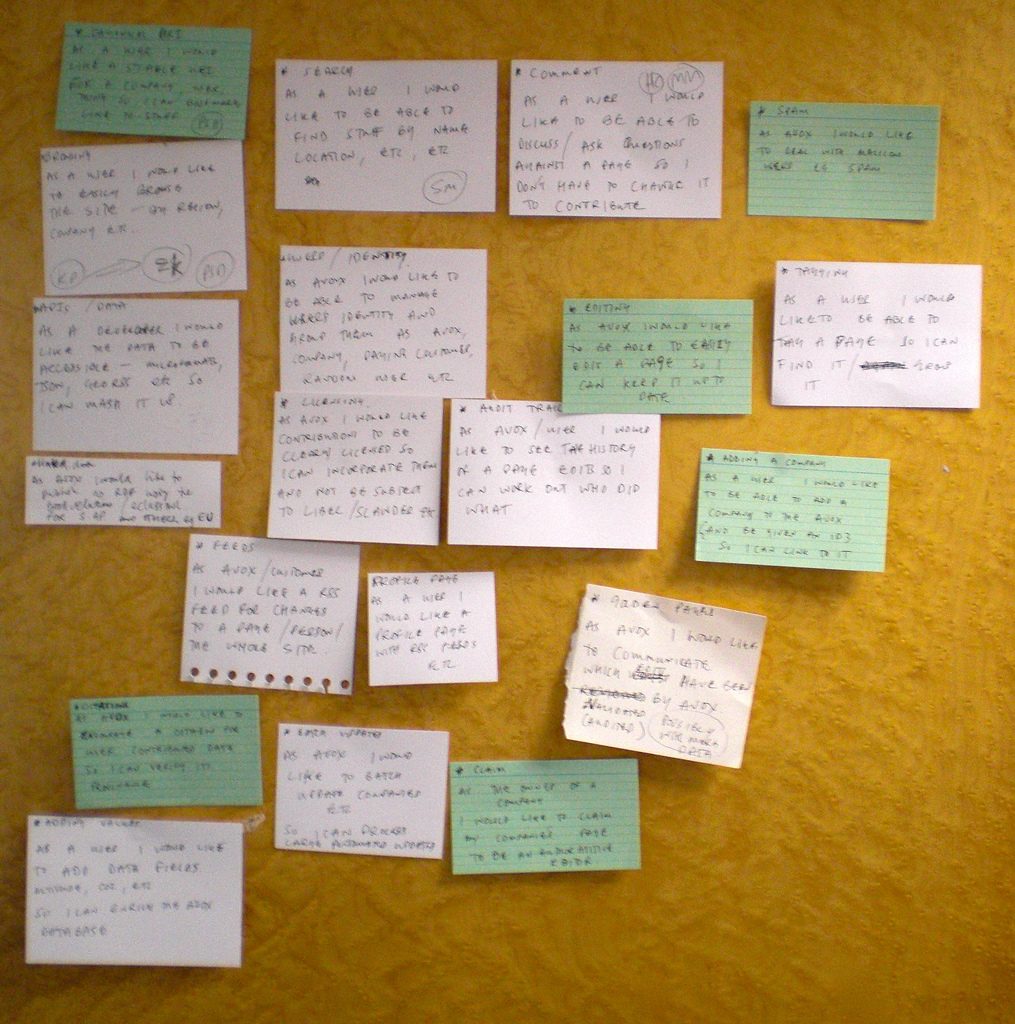 AS A USER I WOULD
LIKE A STABLE URI
FOR A COMPANY
SO I CAN BOOKMARK
LINK TO STUFF
PSD
* SEARCH
AS A USER I WOULD
LIKE TO BE ABLE TO
FIND STUFF BY NAME
LOCATION, ETC, ETC
SM
* COMMENT
HD MM
AS A USER I WOULD
LIKE TO BE ABLE TO
DISCUSS / ASK QUESTIONS
AGAINST A PAGE SO I
DON'T HAVE TO CHANGE IT
TO CONTRIBUTE
* SPAM
AS AVOX I WOULD LIKE
TO DEAL WITH MALICIOUS
USERS EG SPAM
BROWSING
AS A USER I WOULD LIKE
TO EASILY BROWSE
THE SITE - BY REGION,
COMPANY ETC.
PSD
USERS / IDENTITY
AS AVOX I WOULD LIKE TO
BE ABLE TO MANAGE
USERS IDENTITY AND
GROUP THEM AS AVOX,
COMPANY, PAYING CUSTOMER,
RANDOM USER ETC
* TAGGING
AS A USER I WOULD
LIKE TO BE ABLE TO
TAG A PAGE SO I CAN
FIND IT / GROUP
IT
* APIS / DATA
AS A DEVELOPER I WOULD
LIKE THE DATA TO BE
ACCESSIBLE - MICROFORMATS,
JSON, GEORSS ETC SO
I CAN MASH IT UP
* EDITING
AS AVOX I WOULD LIKE
TO BE ABLE TO EASILY
EDIT A PAGE SO I
CAN KEEP IT UP TO
DATE
* LICENSING
AS AVOX I WOULD LIKE
CONTRIBUTIONS TO BE
CLEARLY LICENSED SO
I CAN INCORPORATE THEM
AND NOT BE SUBJECT
TO LIBEL / SLANDER ETC
* AUDIT TRAIL
AS AVOX / USER I WOULD
LIKE TO SEE THE HISTORY
OF A PAGE EDITS SO I
CAN WORK OUT WHO DID
WHAT
* ADDING A COMPANY
AS A USER I WOULD LIKE
TO BE ABLE TO ADD A
COMPANY TO THE AVOX
(AND BE GIVEN AN ID)
SO I CAN LINK TO IT
As AVOX I would like to
publish RDF
* FEEDS
AS AVOX / CUSTOMER
I WOULD LIKE A RSS
FEED FOR CHANGES
TO A PAGE / PERSON /
THE WHOLE SITE.
PROFILE PAGE
AS A USER I
WOULD LIKE A
PROFILE PAGE
WITH RSS FEEDS
ETC
* GOLDEN PAGES
AS AVOX I WOULD LIKE
TO COMMUNICATE
WHICH EDITS HAVE BEEN
REVIEWED BY AVOX
VALIDATED
(AUDITED)
POSSIBLY
DATA
* CITATIONS
AS AVOX I WOULD LIKE TO
A CITATION FOR
USER CONTRIBUTED DATA
SO I CAN VERIFY ITS
PROVENANCE
* BATCH UPDATE
AS AVOX I WOULD
LIKE TO BATCH
UPDATE COMPANIES
ETC
SO I CAN PROCESS
LARGE AUTOMATED UPDATES
* CLAIM
AS THE OWNER OF A
COMPANY
I WOULD LIKE TO CLAIM
MY COMPANIES PAGE
TO BE AN AUTHORITATIVE
EDITOR
* ADDING VALUES
AS A USER I WOULD LIKE
TO ADD DATA FIELDS
ALTITUDE, CO2, ETC
SO I CAN ENRICH THE AVOX
DATABASE